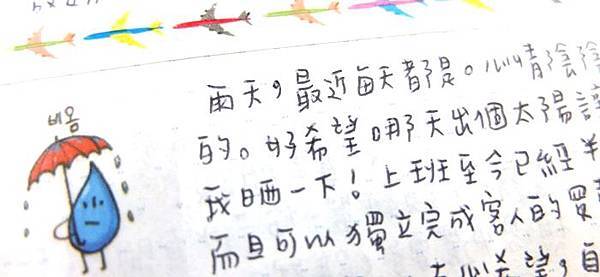 비옴
雨天，最近每天都是。心情陰陰
的。好希望哪天出個太陽讓
我晒一下！上班至今已經半
而且可以獨立完成客人的買